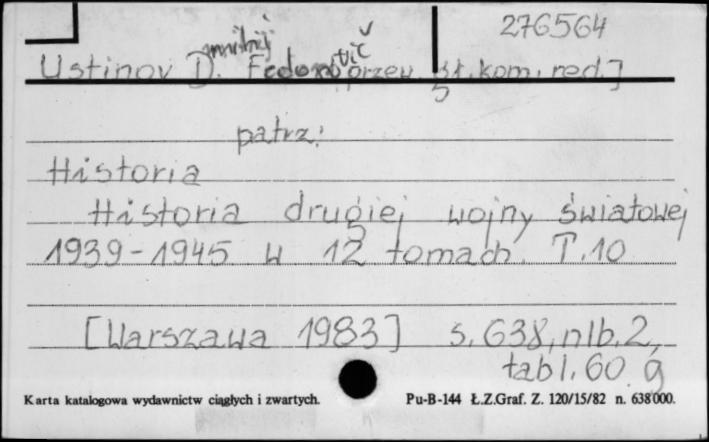 276564
Ustinov Dmitrij Fedorovič przew. gł. kom. red.]
patrz:
Historia
Historia drugiej wojny światowej
1939-1945 w 12 tomach. T.10
[Warszawa 1983] s. 638, nlb. 2,
tabl. 60 g
Karta katalogowa wydawnictw ciągłych i zwartych. Pu-B-144 Ł.Z.Graf. Z. 120/15/82 n. 638 000.